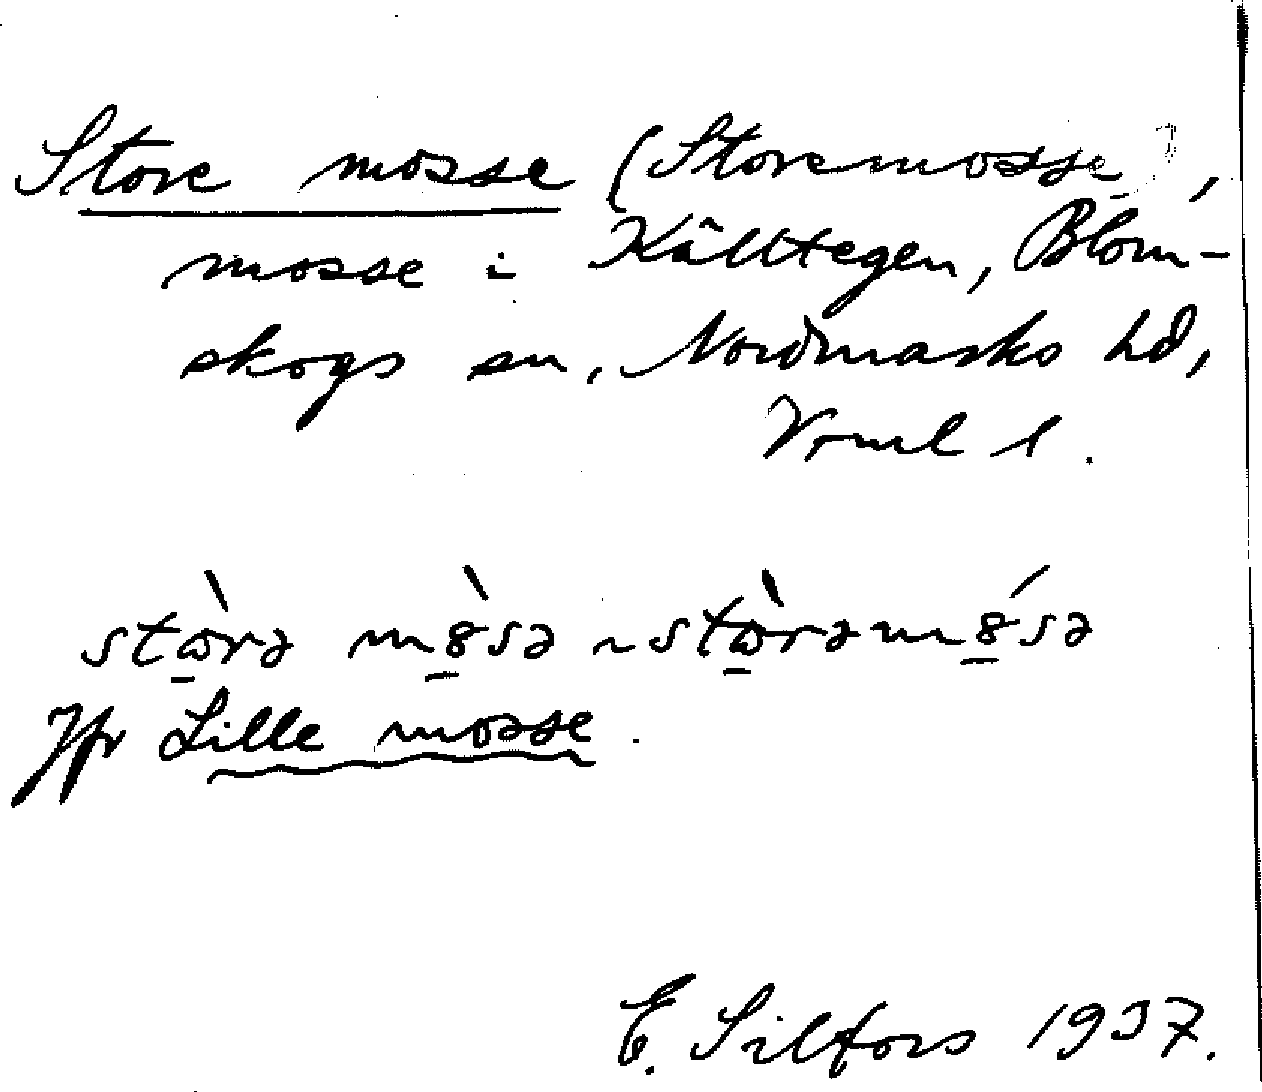 Store mosse (Storemosse),
mosse i Källtegen, Blom-
skogs sn, Nordmarks hd,
Vrml l.
stɷ̀rə mȣ̀sə ~ stɷ̀rəmȣ́sə
Jfr Lille mosse.
E. Silfors 1937.